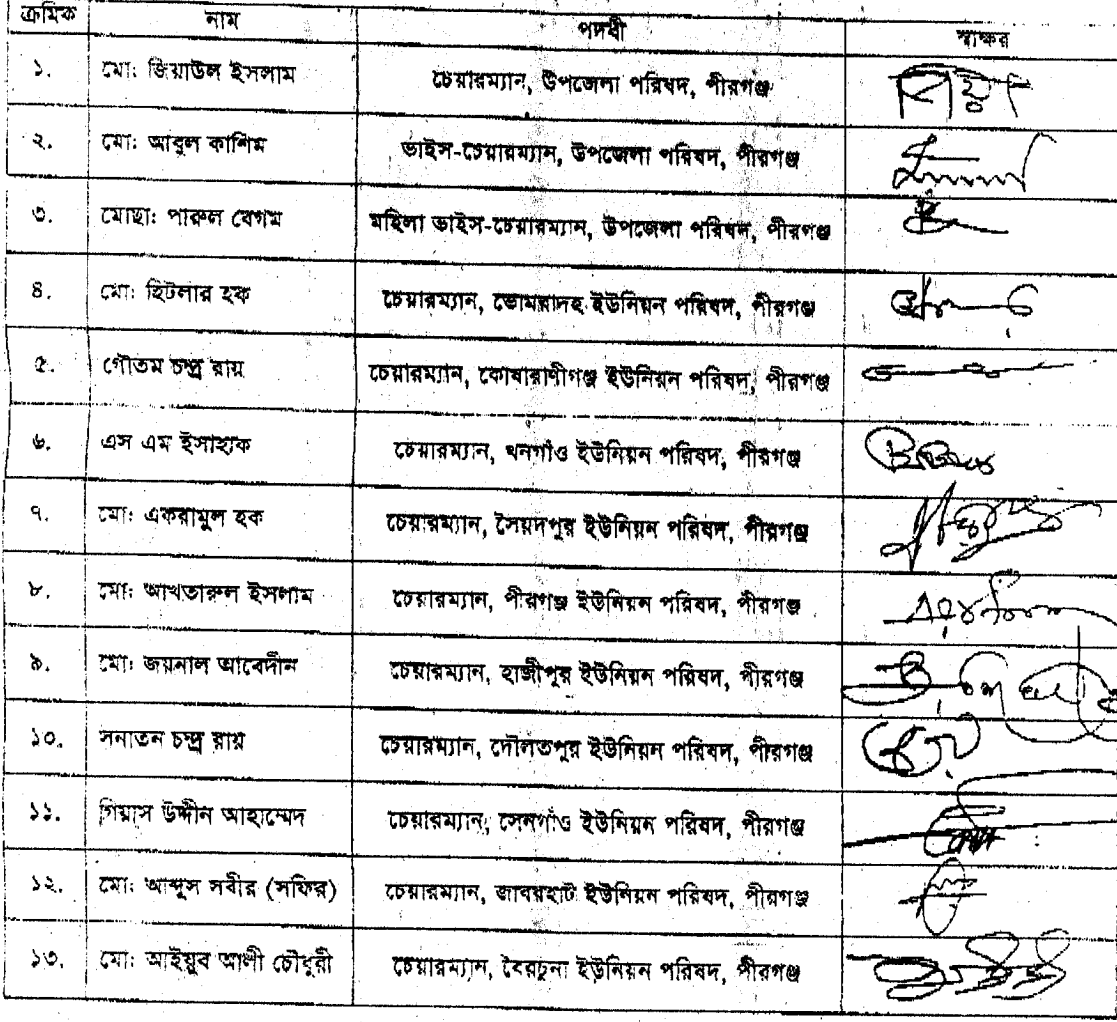 ক্রমিক নাম পদবী স্বাক্ষর
১. মো: জিয়াউল ইসলাম চেয়ারম্যান, উপজেলা পরিষদ, পীরগঞ্জ
২. মো: আবুল কাশিম ভাইস-চেয়ারম্যান, উপজেলা পরিষদ, পীরগঞ্জ
৩. মোছা: পারুল বেগম মহিলা ভাইস-চেয়ারম্যান, উপজেলা পরিষদ, পীরগঞ্জ
৪. মো: হিটলার হক চেয়ারম্যান, ভোমরাদহ ইউনিয়ন পরিষদ, পীরগঞ্জ
৫. গৌতম চন্দ্র রায় চেয়ারম্যান, কোষারাণীগঞ্জ ইউনিয়ন পরিষদ, পীরগঞ্জ
৬. এস এম ইসাহাক চেয়ারম্যান, খনগাঁও ইউনিয়ন পরিষদ, পীরগঞ্জ
৭. মো: একরামুল হক চেয়ারম্যান, সৈয়দপুর ইউনিয়ন পরিষদ, পীরগঞ্জ
৮. মো: আখতারুল ইসলাম চেয়ারম্যান, পীরগঞ্জ ইউনিয়ন পরিষদ, পীরগঞ্জ
৯. মো: জয়নাল আবেদীন চেয়ারম্যান, হাজীপুর ইউনিয়ন পরিষদ, পীরগঞ্জ
১০. সনাতন চন্দ্র রায় চেয়ারম্যান, দৌলতপুর ইউনিয়ন পরিষদ, পীরগঞ্জ
১১. গিয়াস উদ্দীন আহাম্মেদ চেয়ারম্যান, সেনগাঁও ইউনিয়ন পরিষদ, পীরগঞ্জ
১২. মো: আব্দুস সবীর (সফির) চেয়ারম্যান, জাবরহাট ইউনিয়ন পরিষদ, পীরগঞ্জ
১৩. মো: আইয়ুব আলী চৌধুরী চেয়ারম্যান, বৈরচুনা ইউনিয়ন পরিষদ, পীরগঞ্জ